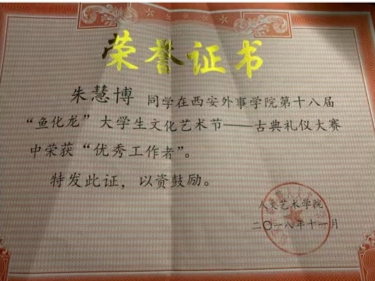 荣誉证书
朱慧博 同学在西安外事学院第十八届
“鱼化龙”大学生文化艺术节——古典礼仪大赛
中荣获“优秀工作者”。
特发此证，以资鼓励。
艺术学院
二〇一八年十一月